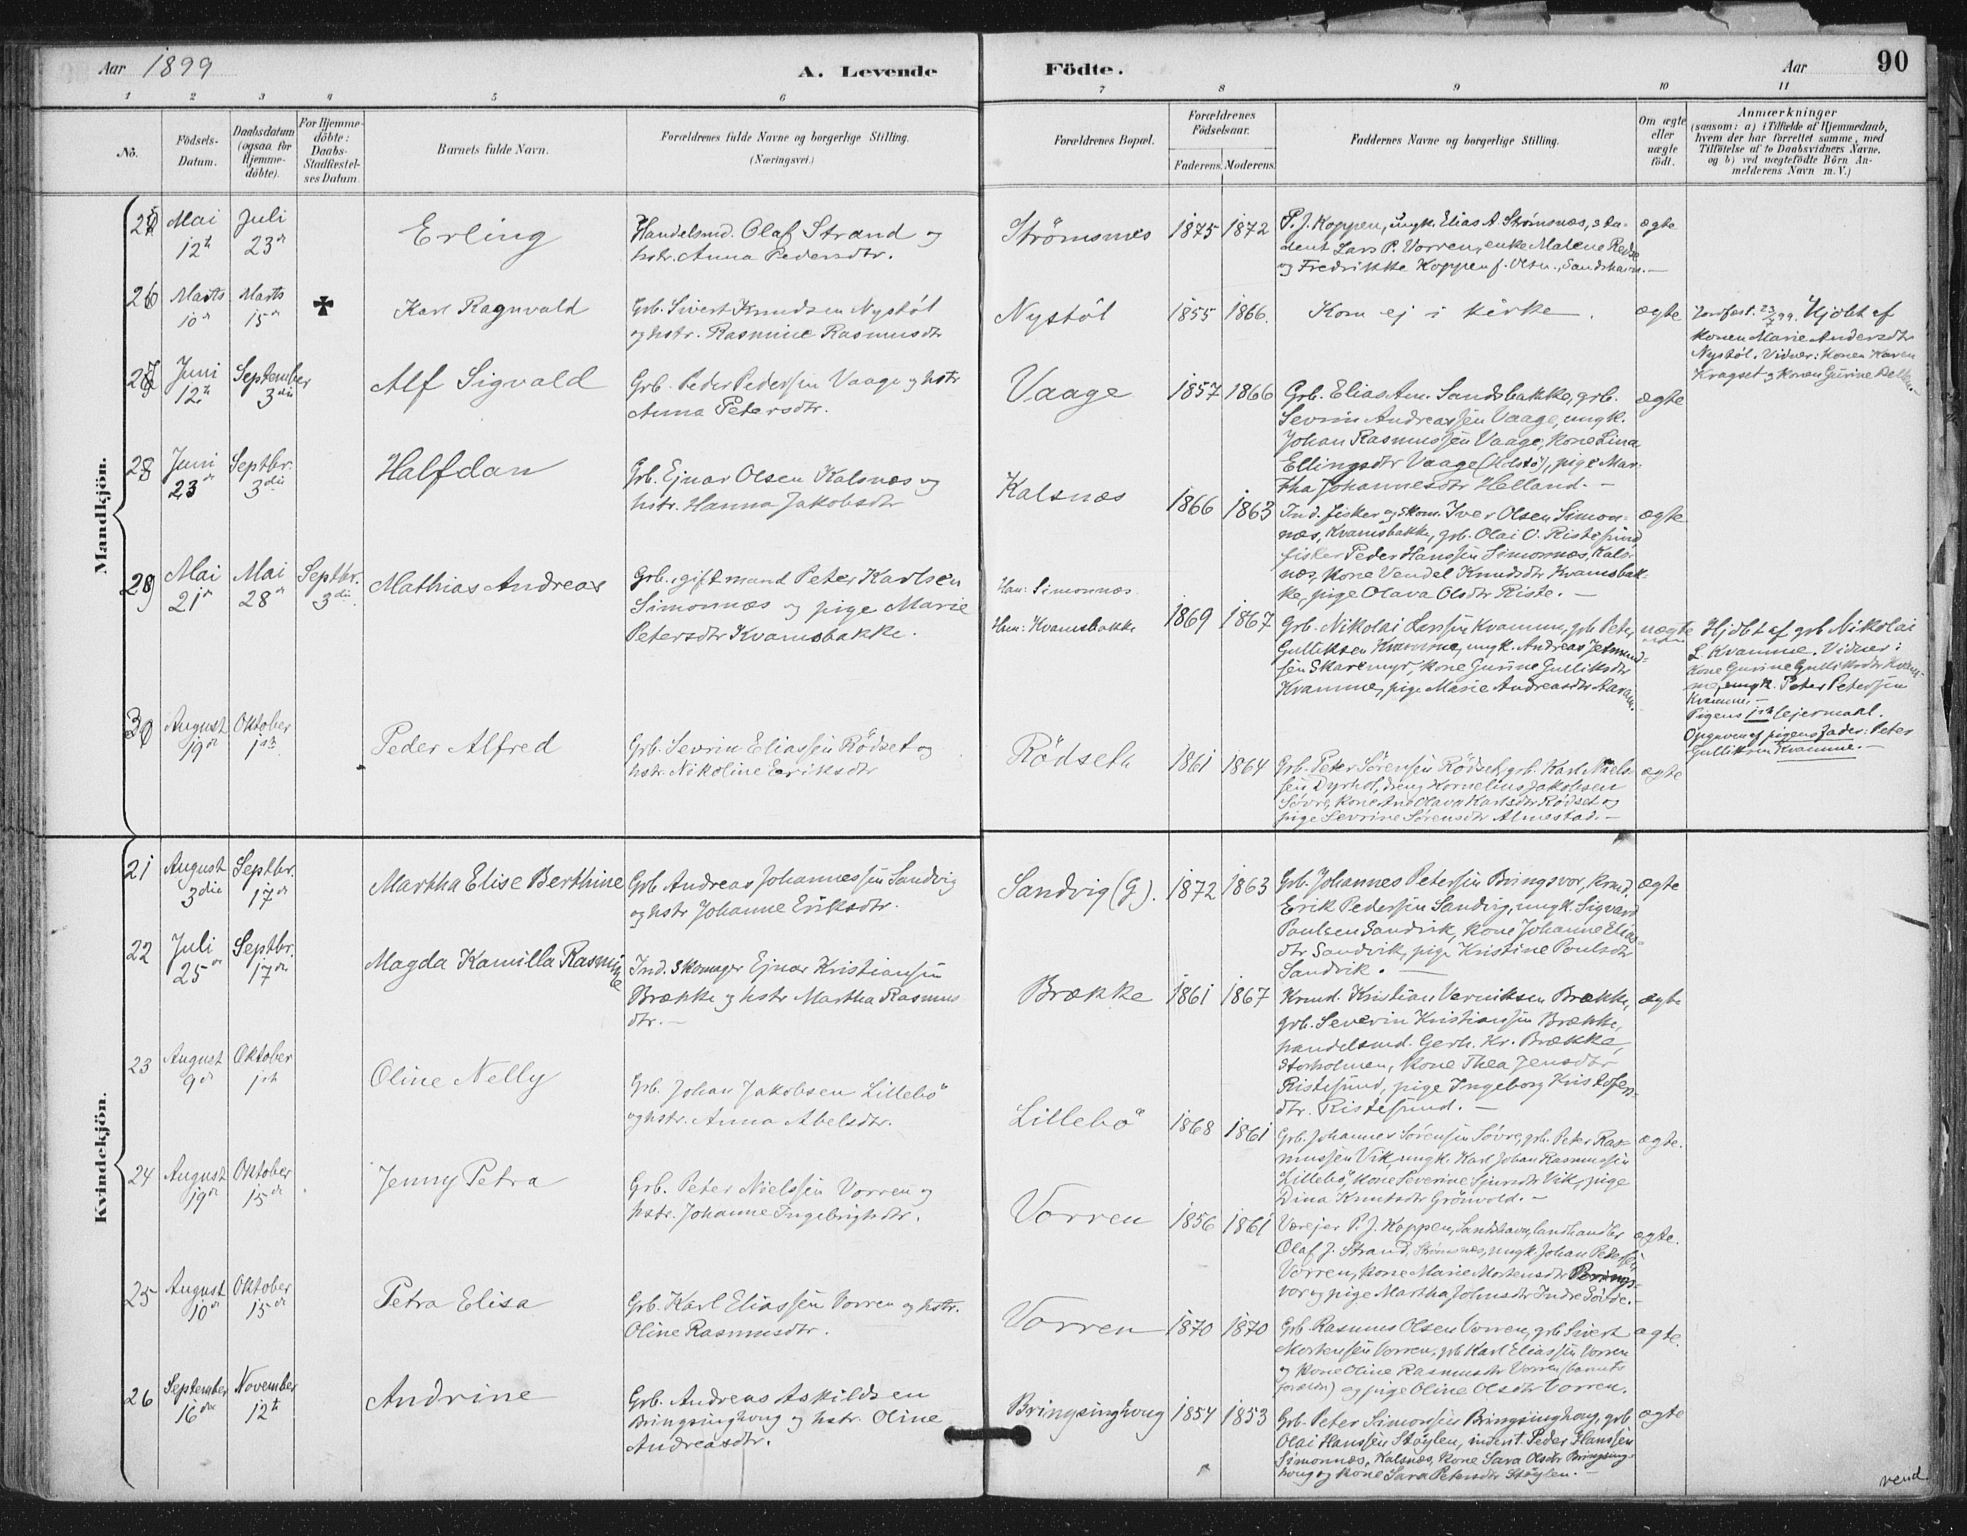 Aar 1899
A. Levende
Födte.
Aar
90
1 2 3 4 5 6
7 8 9 10 11
No.
Födsels-
Datum.
Daabsdatum
(ogsaa for
Hjemme-
döbte).
For Hjemme-
döbte:
Daabs-
Stadfæstel-
ses Datum.
Barnets fulde Navn.
Forældrenes fulde Navne og borgerlige Stilling.
(Næringsvei.)
Forældrenes Bopæl.
Forældrenes
Födselsaar.
Faderens. Moderens.
Faddernes Navne og borgerlige Stilling.
Om ægte
eller
uægte
födt.
Anmærkninger
(saasom: a) i Tilfælde af Hjemmedaab,
hvem der har forrettet samme, med
Tilföielse af to Daabsvidners Navne,
og b) ved uægtefödte Börn An-
melderens Navn m. V.)
Mandkjön.
25 Mai 12te Juli 23de
Erling
Handelsmd. Olaf Strand og
hstr. Anna Pedersdtr.
Strømsnes 1875 1872
P. J. Koppen, ungk. Elias A Strömsnæs, stu-
dent Lars P. Vorren, enke Malene
og Fredrikke Koppen f. Sandshavn.
ægte
26 Marts 10de Marts 15de
Karl Ragnvald
Grb. Sivert Knudsen Nystöl
og hstr. Rasmine Rasmusdtr
Nystöl 1855 1866.
Kom ej i kirke.
ægte
Jordfæst. 23/7 99. Hjdbt af
konen Marie Andersdtr
Nystöl. Vidner: Konen Karen
Kragset og Konen Gurine
27 Juni 12te September 3die
Alf Sigvald
Grb. Peder Pedersen Vaage og hstr
Anna Petersdtr.
Vaage 1857 1866
Grb. Elias Am. Sandsbakke, grb.
Sevrin Andreassen Vaage, ungk.
Johan Rasmussen Vaage, Kone Lina
Ellingsdtr Vaage (Holstö), pige Mar-
tha Johannesdtr Helland.
ægte
28 Juni 23de Septbr. 3die
Halfdan
Grb. Ejnar Olsen Kalsnæs og
hstr. Hanna Jakobsdtr
Kalsnæs 1866 1863
Ind. fisker og skom. Iver Olsen Simon-
næs, Kvamsbakke, grb. Olai O. Ristesund
fisker Peder Hanssen Simonnæs, Kals-
næs, Kone Vendel Knudsdtr Kvamsbak-
ke, pige Olava Olsdtr Riste.
ægte
29 Mai 21de Mai 28de Septbr. 3die
Mathias Andreas
Grb., gift mand Peter Karlsen
Simonnæs og pige Marie
Petersdtr Kvamsbakke.
Han: Simonnæs.
Hun: Kvamsbakke
1869 1867
Grb. Nikolai Larssen Kvamme, grb Peter
Gulliksen Kvamme, ungk. Andreas Jetmund-
sen Skaremyr, Kone Gurine Gulliksdtr
Kvamme, pige Marie Andreasdtr Aaram.
uægte
Hjdbt af grb Nikolai
L. Kvamme. Vidner:
Kone Gurine Gulliksdtr Kvam-
me, ungk. Peter Petersen
Kvamme.
Pigens 1ste lejermaal.
Opgaven af pigens fader: Peter
Gulliksen Kvamme.
30 August 19de Oktober 1ste
Peder Alfred
Grb. Sevrin Eliassen Rödset og
hstr. Nikoline Eriksdtr
Rödseth 1861 1864
Grb. Peter Sörensen Rödset, grb. Karl Niels-
sen Dyrhol, dreng Kornelius Jakobsen
Sövre, Kone Ane Olava Karlsdtr Rödset og
pige Sevrine Sörensdtr Almestad.
ægte
Kvindekjön.
21 August 3die Septbr. 17de
Martha Elise Berthine
Grb Andreas Johannessen Sandvig
og hstr Johanne Eriksdtr.
Sandvig (G). 1872 1863
Grb. Johannes Petersen Bringsvor, Krmd.
Erik Pedersen Sandvig, ungk. Sigvard
Paulsen Sandvik, Kone Johanne Elias-
dtr Sandvik, pige Kristine Poulsdtr
Sandvik.
ægte
22 Juli 25de Septbr. 17de
Magda Kamilla Rasmine
Ind. Skomager Ejnar Kristiansen
Brække og hstr Martha Rasmus-
dtr.
Brække 1861 1867
Krmd. Kristian Verniksen Brække,
grb. Severin Kristiansen Brække,
handelsmd. Gerh. Kr. Brække,
Storholmen, Kone Thea Jensdtr
Ristesund, pige Ingeborg Kristofers-
dtr. Ristesund.
ægte
23 August 9de Oktober 1ste
Oline Nelly
Grb. Johan Jakobsen Lillebö
og hstr. Anna Abelsdtr.
Lillebö 1868 1861
Grb. Johannes Sörensen Sövre, grb. Peter Ras-
mussen Vik, ungk. Karl Johan Rasmussen
Lillebö, Kone Severine Sjursdtr Vik, pige
Dina Knutsdtr Grönvold.
ægte.
24 August 19de Oktober 15de
Jenny Petra
Grb. Peter Nielssen Vorren og
hstr. Johanne Ingebrigtsdtr.
Vorren 1856 1861
Værejer P. J. Koppen, Sandshavn, landhandler
Olaf J. Strand, Strömsnæs, ungk Johan Petersen
Vorren, Kone Marie Mortensdtr Brings-
vor og pige Martha Johnsdtr Indre Söide.
ægte.
25 August 10de Oktober 15de
Petra Elisa
Grb. Karl Eliassen Vorren og hstr.
Oline Rasmusdtr.
Vorren 1870 1870
Grb. Rasmus Olsen Vorren, grb Sivert
Mortensen Vorren, grb Karl Eliassen Vorren
og Kone Oline Rasmusdtr Vorren (barnets
forældre) og pige Oline Olsdtr Vorren.
ægte.
26 September 16de November 12te
Andrine
Grb. Andreas Askildsen
Bringsinghoug og hstr. Oline
Andreasdtr.
Bringsinghoug 1854 1853
Grb. Peter Simonsen Bringsinghoug, grb
Olai Hanssen Stöylen, inderst. Peder Hanssen
Simonnæs, Kalsnæs, Kone Sara Olsdtr Bringsing-
houg og Kone Sara Petersdtr Stöylen.
ægte
vend